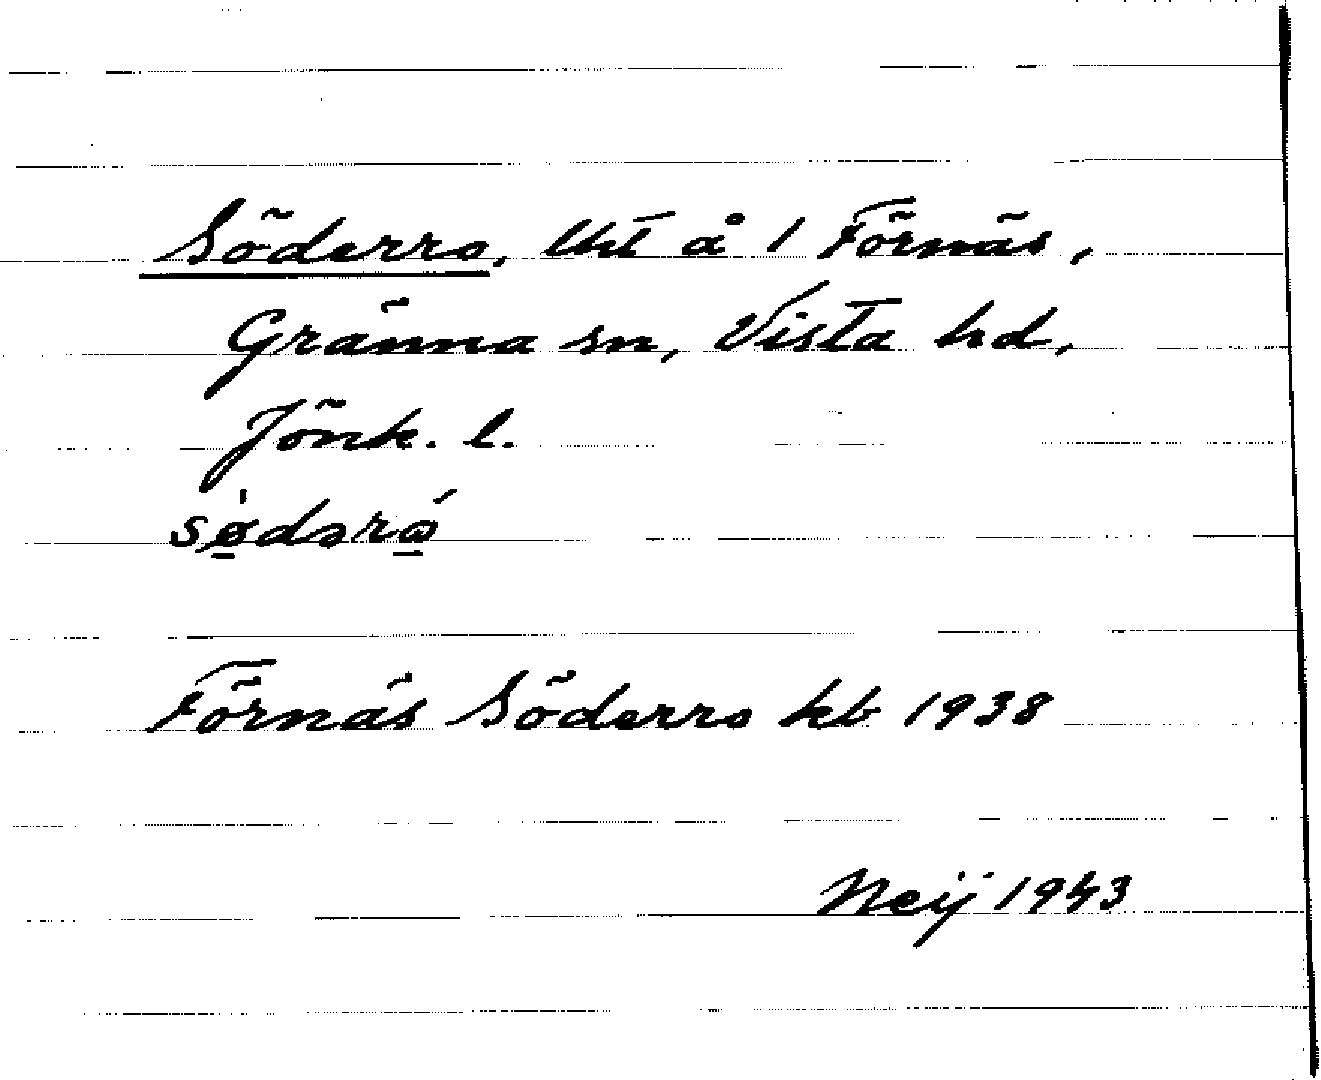 Söderro, lht å 1 Förnäs,
Gränna sn, Vista hd,
Jönk. l.
sø̠̀dərǿ̠
Förnäs Söderro kb 1938
Neij 1943